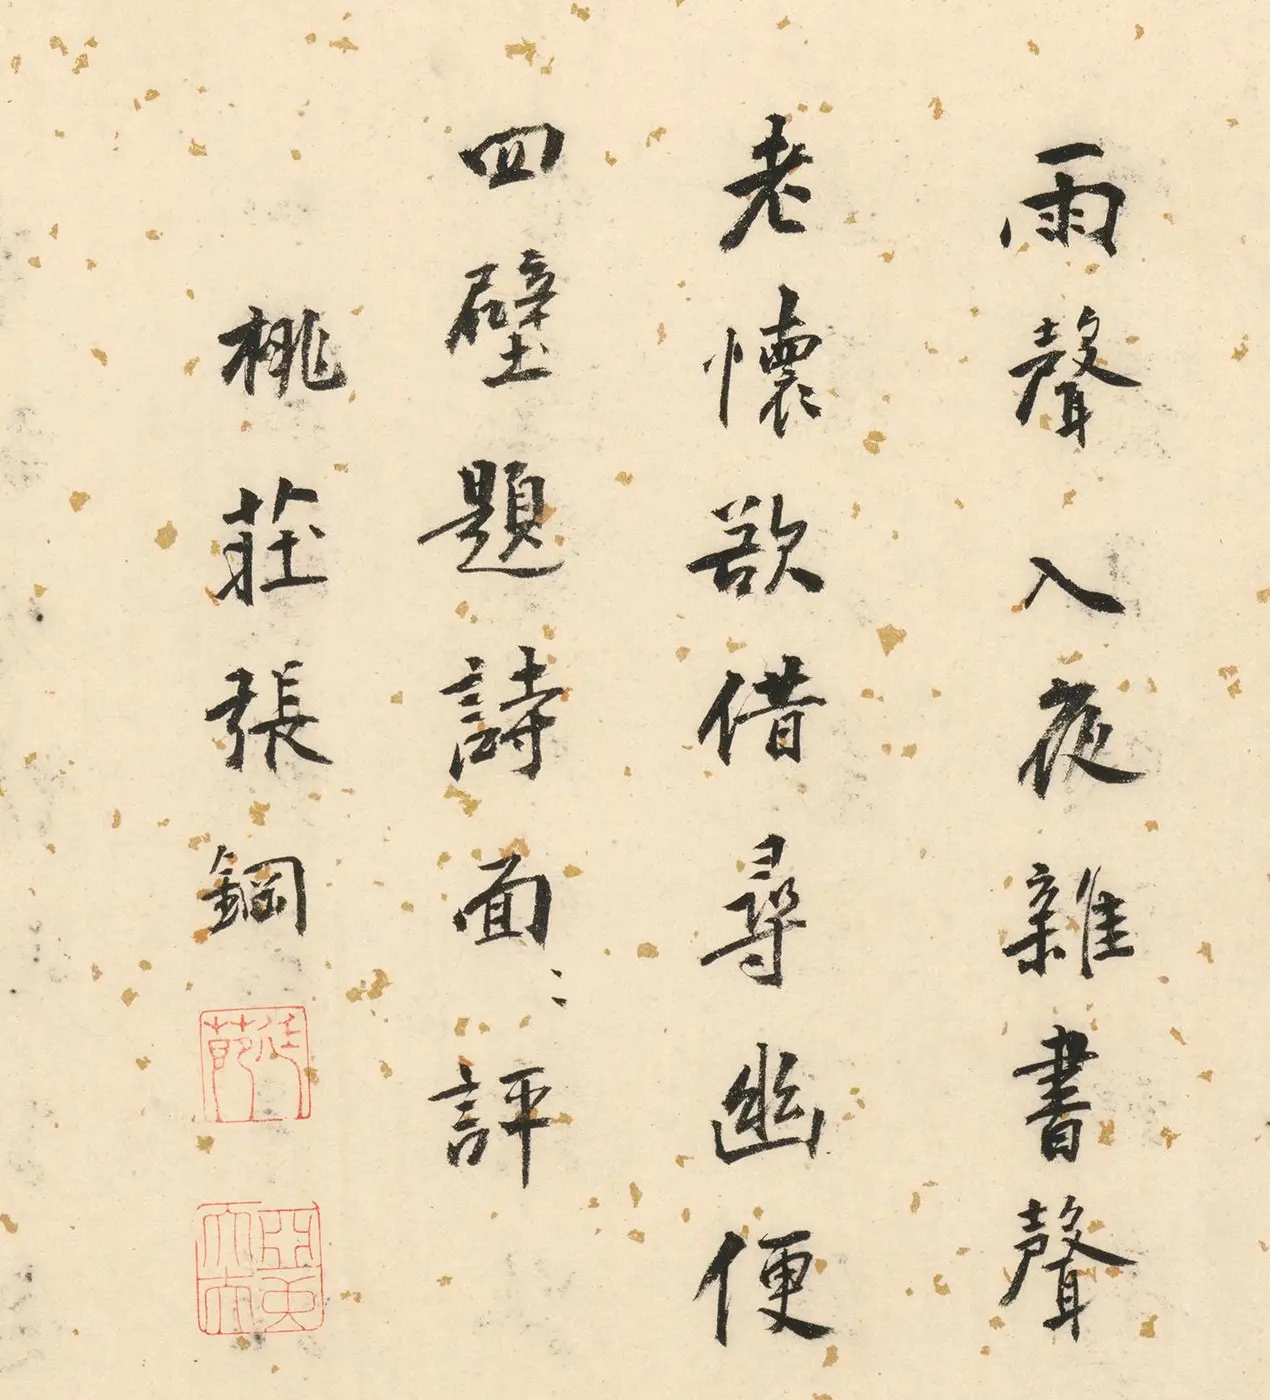 雨聲入夜雜書聲
老懷欲借尋幽便
四壁題詩面〻評
桃莊張鋼